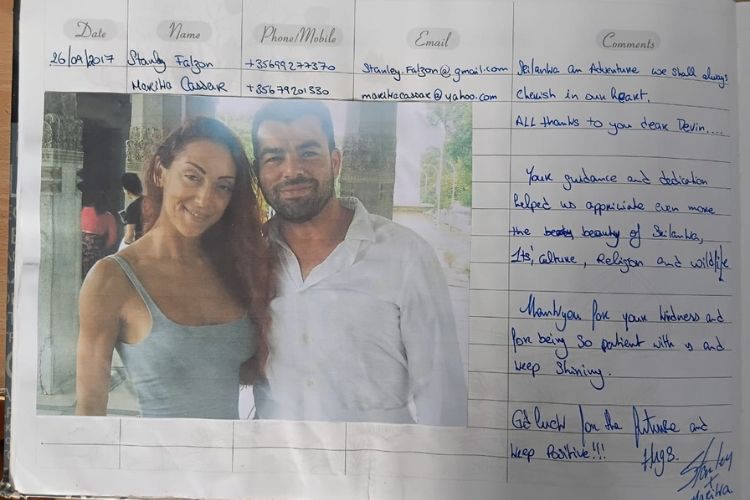 Date Name Phone/Mobile Email Comments
26/09/2017 Stanley Falzon +35699277370 Stanley.Falzon@gmail.com
Marika Cassar +35679201330 marikacassar@yahoo.com
Srilanka an Adventure we shall always
cherish in our heart.
ALL thanks to you dear Devin....
Your guidance and dedication
helped us appriciate even more
the beauty of Srilanka,
Its', culture, Religon and wildlife
Thankyou for your kindness and
for being so patient with us and
keep shining.
Gd luck for the future and
keep Positive!!! Hugs.
Stanley
+
Marika